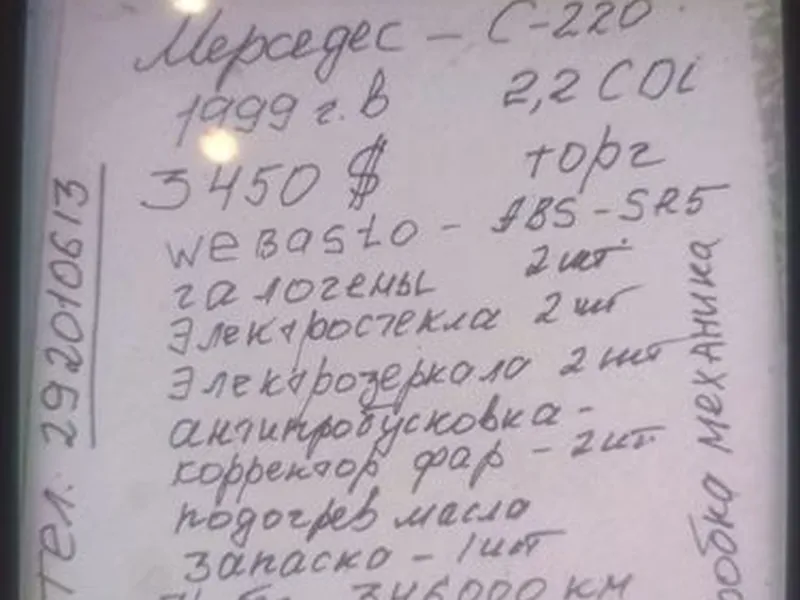 Мерседес – С-220
1999 г.в 2,2 CDi
3450 $ торг
weBasto – ABS – SRS
галогены 2 шт.
Электростекла 2 шт
Электрозеркала 2 шт
антипробусковка –
корректор фар – 2 шт
подогрев масла
запаска – 1 шт
346000 км
Тел. 292010613
робка механика